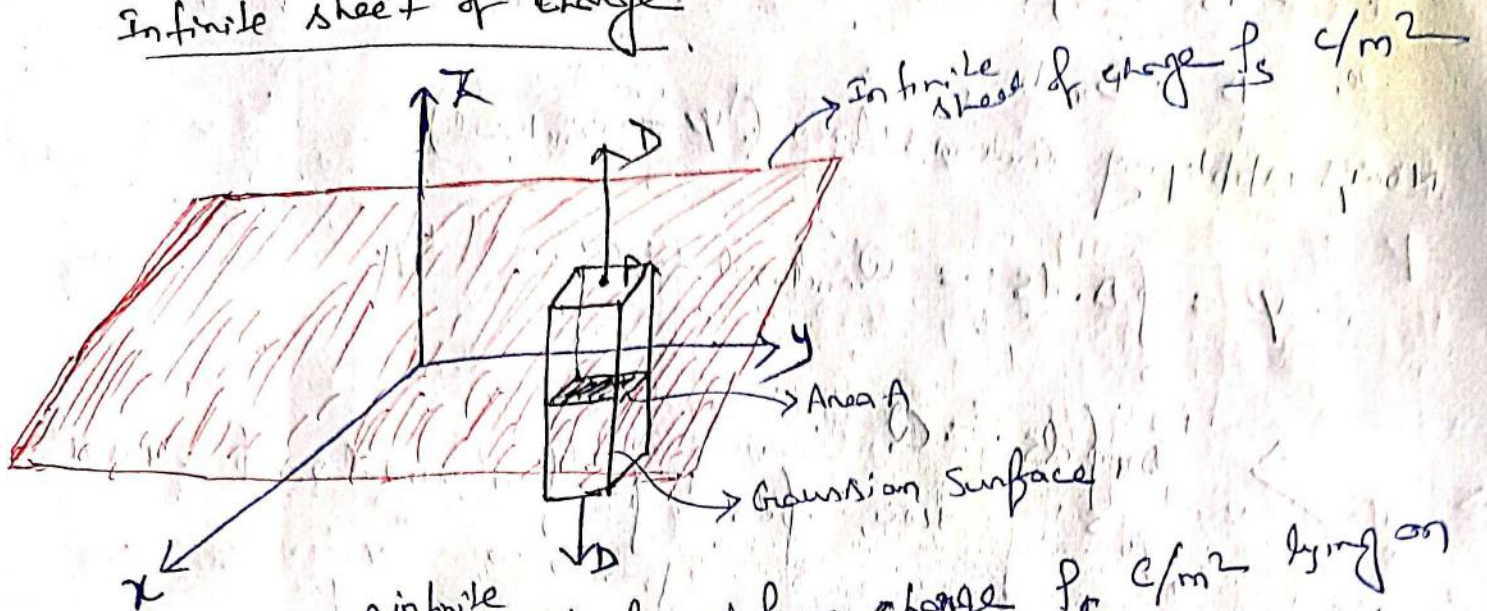 Infinite sheet of charge
Z
Infinite sheet of charge ρs C/m²
D
P
y
Area A
Gaussian Surface
D
x
infinite
charge ρs C/m² lying on